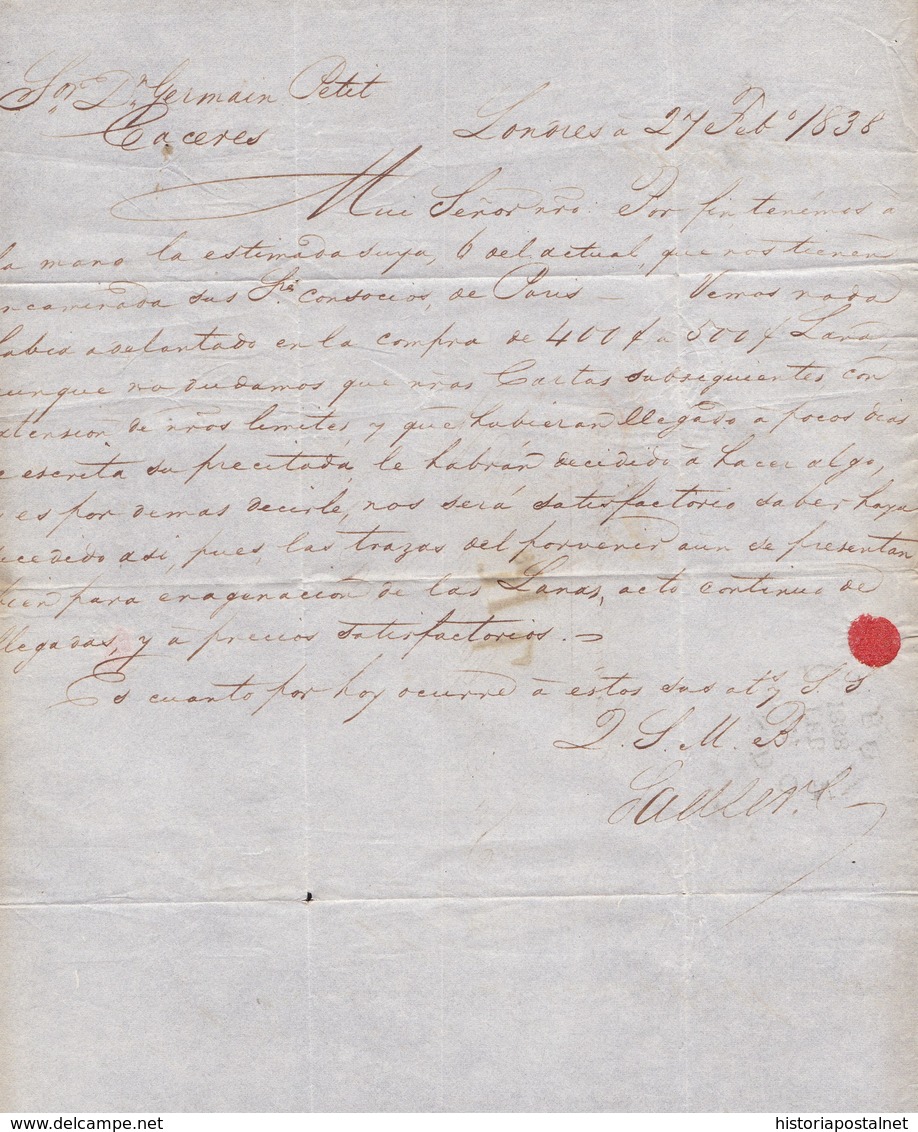 Sor. Dn. Germain Petit
Caceres
Londres a 27 Febo. 1838
Mui Señor nro. Por fin tenémos a
la mano la estimada suya, 6 del actual, que nos tienen
encaminada sus Sres. consocios, de Paris — Vemos nada
habia adelantado en la compra de 400 f a 500 f Lana,
aunque no dudamos que nras Cartas subsiguientes con
extension de nros limites, y que habieran llegado a pocos dias
de escrita su precitada, le habrán decidido à hacer algo,
y es por demas decirle, nos será satisfactorio saber haya
sucedido asi, pues, las trazas del porvenir aún se presentan
bien para enagenacion de las Lanas, acto continuo de
llegadas, y à precios satisfactorios. —
Es cuanto por hoy ocurre à éstos sus ats. y S. S.
Q. S. M. B.
historiapostalnet
delcampe.net